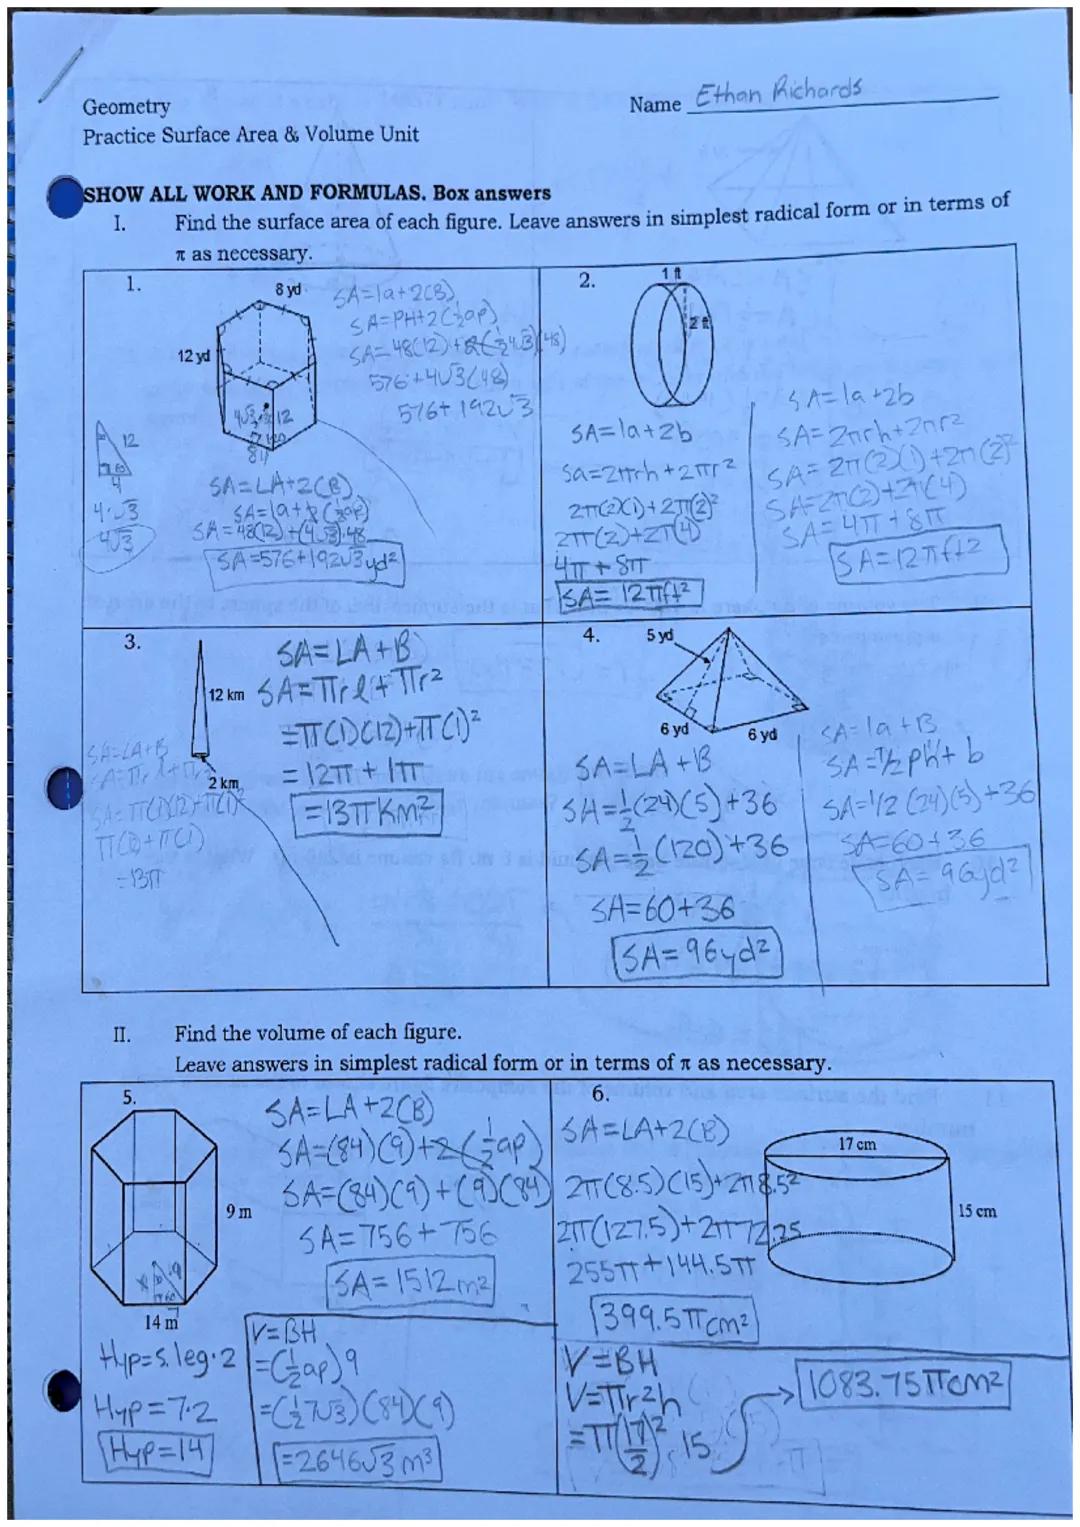 Geometry
Name Ethan Richards
Practice Surface Area & Volume Unit
SHOW ALL WORK AND FORMULAS. Box answers
I. Find the surface area of each figure. Leave answers in simplest radical form or in terms of
π as necessary.
1.
8 yd
12 yd
SA=la+2(B)
SA=PH+2(½ap)
SA=48(12)+2(½4√3)(48)
576+4√3(48)
576+192√3
12
60
4
4·√3
4√3
SA=LA+2(B)
SA=la+2(½ap)
SA=48(12)+(4√3)·48
SA=576+192√3yd²
2.
1 ft
2 ft
SA=la+2b
Sa=2πrh+2πr²
2π(2)(1)+2π(2)²
2π(2)+2π(4)
4π+8π
SA=12πft²
SA=la+2b
SA=2πrh+2πr²
SA=2π(2)(1)+2π(2)²
SA=2π(2)+2π(4)
SA=4π+8π
SA=12πft²
3.
12 km
2 km
SA=LA+B
SA=πrl+πr²
=π(1)(12)+π(1)²
=12π+1π
=13πkm²
SA=LA+B
SA=πrl+πr²
SA=π(1)(12)+π(1)²
=13π
4.
5 yd
6 yd
6 yd
SA=LA+B
SA=½(24)(5)+36
SA=½(120)+36
SA=60+36
SA=96yd²
SA=la+B
SA=½ph+b
SA=1/2(24)(5)+36
SA=60+36
SA=96yd²
II. Find the volume of each figure.
Leave answers in simplest radical form or in terms of π as necessary.
5.
9 m
14 m
SA=LA+2(B)
SA=(84)(9)+2(½ap)
SA=(84)(9)+(9)(84)
SA=756+756
SA=1512m²
Hyp=s.leg·2
Hyp=7·2
Hyp=14
V=BH
=(½ap)9
=(½7√3)(84)(9)
=2646√3m³
6.
17 cm
15 cm
SA=LA+2(B)
2π(8.5)(15)+2π8.5²
2π(127.5)+2π72.25
255π+144.5π
399.5πcm²
V=BH
V=πr²h
=π(17/2)²·15
1083.75πcm²